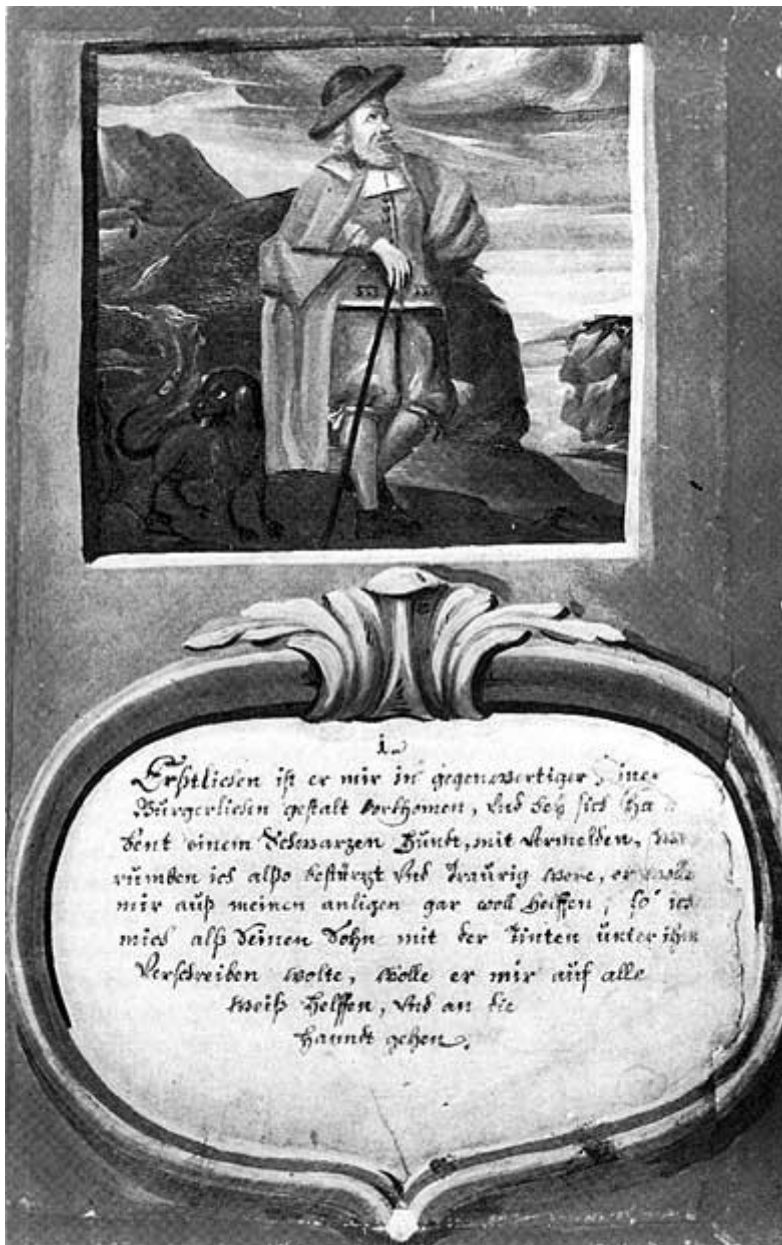 1.
Erstlichen ist er mir in gegenwertiger
Bürgerlichen gestalt vorkhomen, Vnd beÿ sich
bent einem Schwarzen Hundt, mit Vermelden, wa
rumben ich alßo bestürzt Vnd Traurig were, er wolle
mir auß meinen anligen gar woll helffen, so ich
mich alß Seinen Sohn mit der Tinten unter ihm
Verschreiben wolte, wolle er mir auf alle
weiß helffen, Vnd an die
Hanndt gehen.